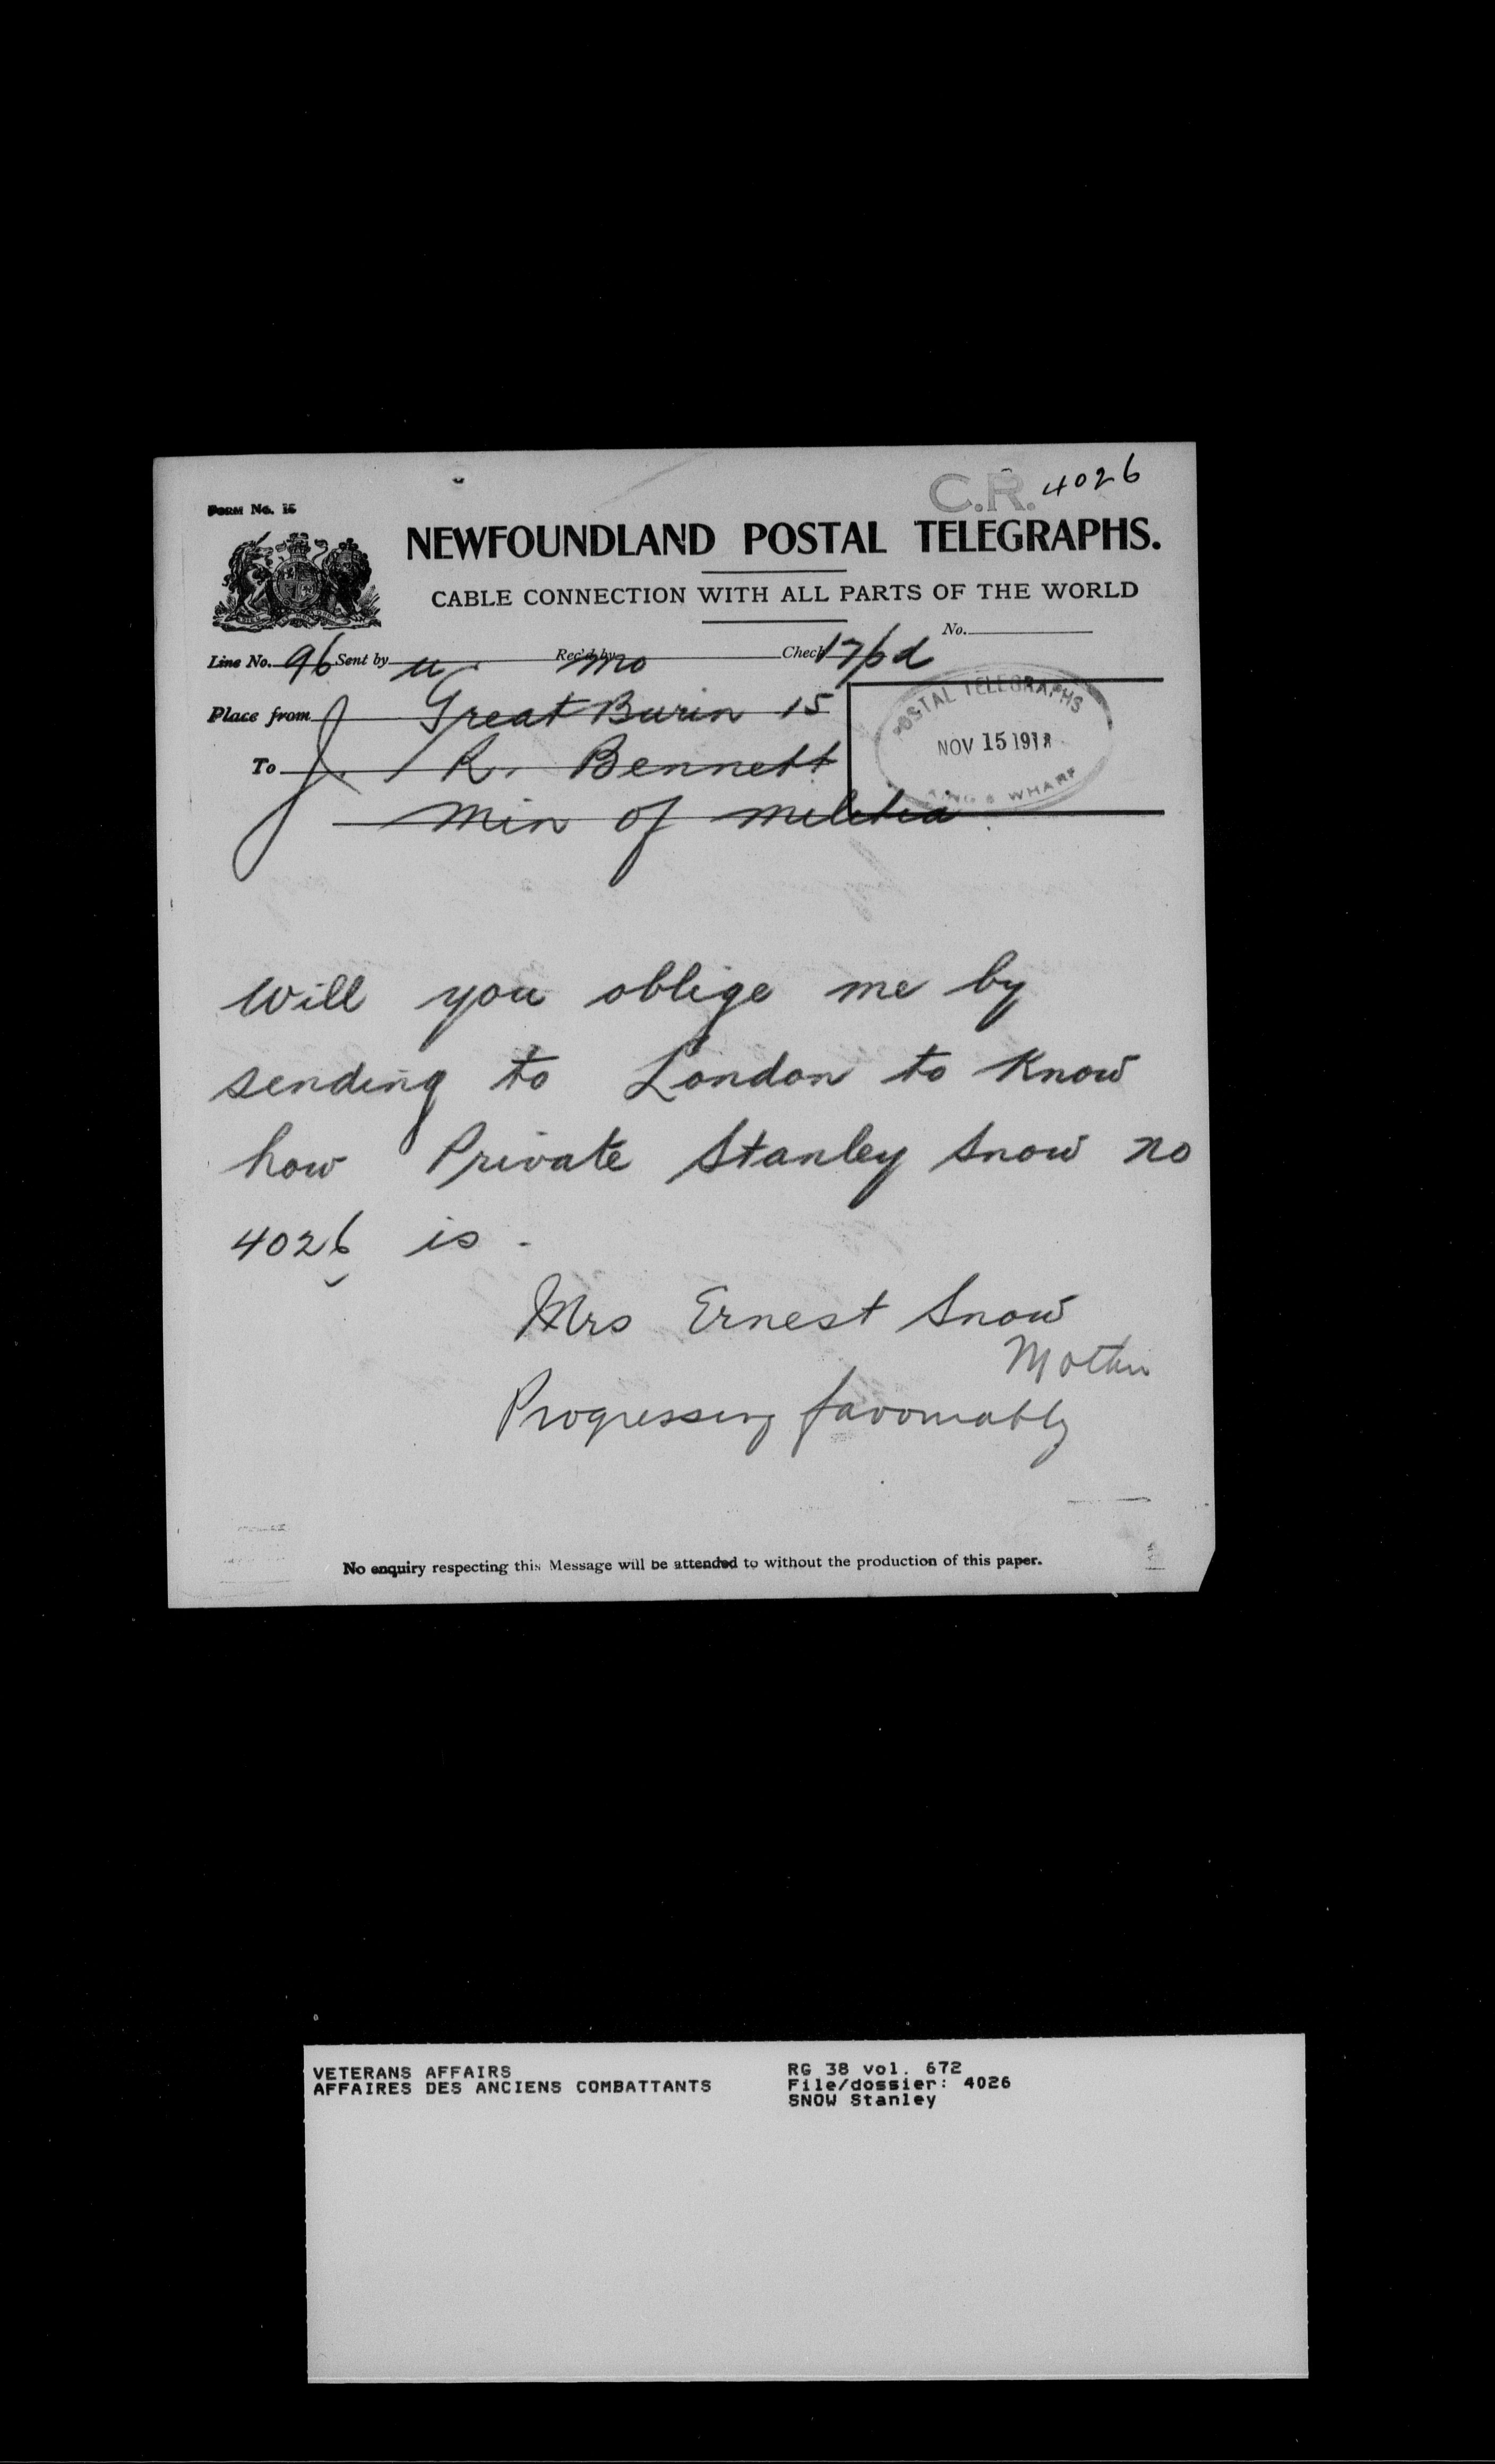 C.R. 4026
FORM No. 16
NEWFOUNDLAND POSTAL TELEGRAPHS.
CABLE CONNECTION WITH ALL PARTS OF THE WORLD
No.
Line No. 96 Sent by Rec'd by Mo Check 17/pd
Place from Great Burin 15
POSTAL TELEGRAPHS
NOV 15 1918
WHARF
To J. R. Bennett
Min of Militia
Will you oblige me by
sending to London to know
how Private Stanley Snow no
4026 is.
Mrs Ernest Snow
Mother
Progressing favourably
No enquiry respecting this Message will be attended to without the production of this paper.
VETERANS AFFAIRS RG 38 vol. 672
AFFAIRES DES ANCIENS COMBATTANTS File/dossier: 4026
SNOW Stanley